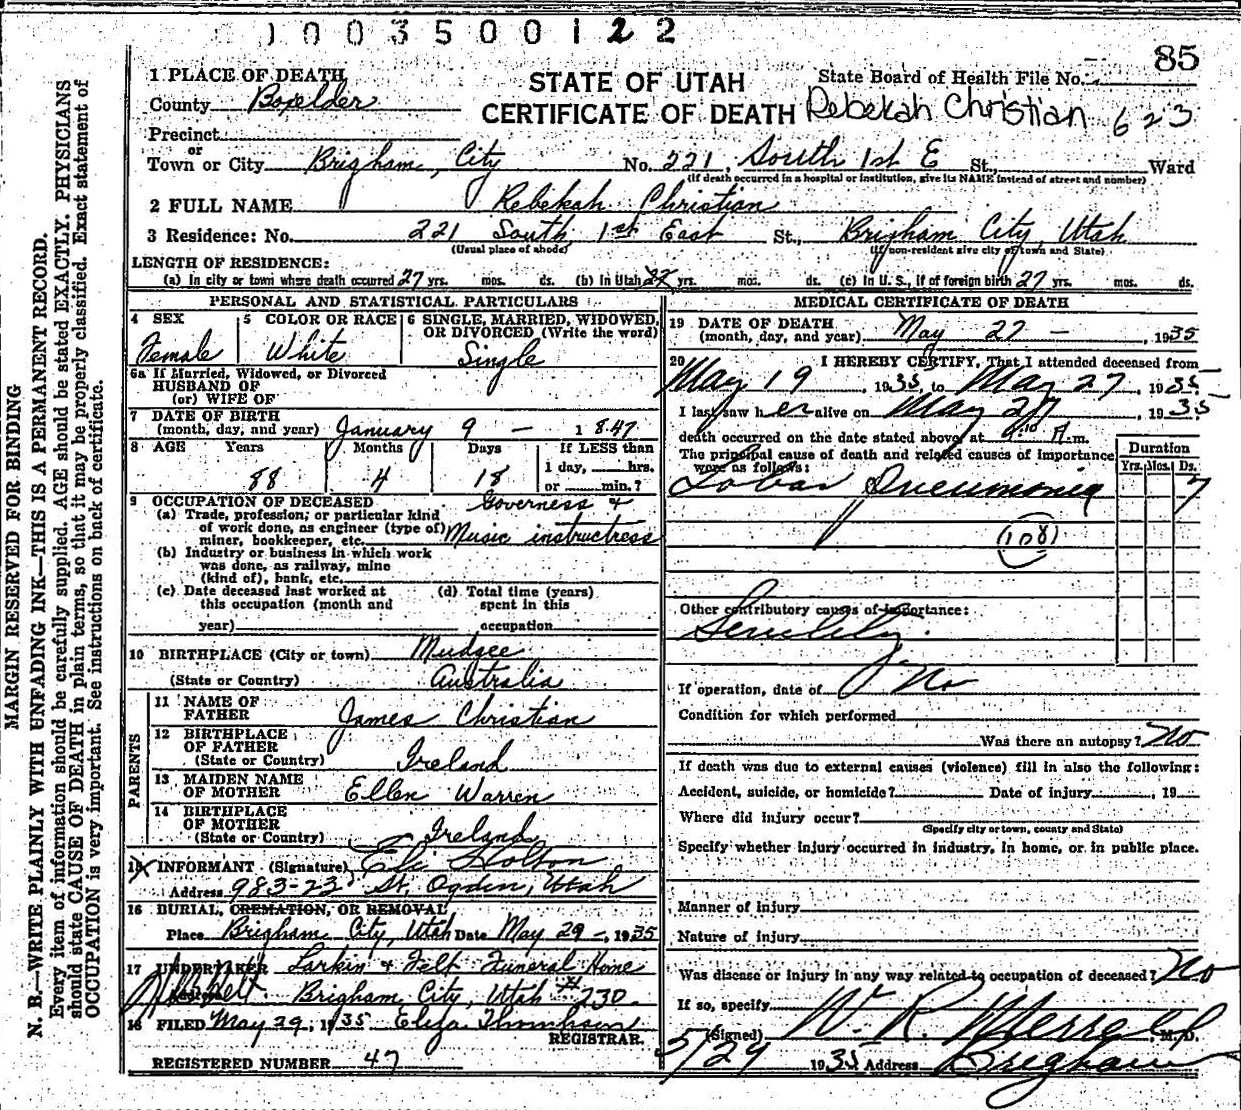 1003500122
85
MARGIN RESERVED FOR BINDING
N. B.—WRITE PLAINLY WITH UNFADING INK—THIS IS A PERMANENT RECORD.
Every item of information should be carefully supplied. AGE should be stated EXACTLY. PHYSICIANS
should state CAUSE OF DEATH in plain terms, so that it may be properly classified. Exact statement of
OCCUPATION is very important. See instructions on back of certificate.
STATE OF UTAH
CERTIFICATE OF DEATH
State Board of Health File No.
Rebekah Christian 623
1 PLACE OF DEATH
County Boxelder
Precinct
or
Town or City Brigham City No. 221, South 1st E St., Ward
(If death occurred in a hospital or institution, give its NAME instead of street and number)
2 FULL NAME Rebekah Christian
3 Residence: No. 221 South 1st East St., Brigham City, Utah
(Usual place of abode) (If non-resident give city or town and State)
LENGTH OF RESIDENCE:
(a) In city or town where death occurred 27 yrs. mos. ds. (b) In Utah 27 yrs. mos. ds. (c) In U. S., if of foreign birth 27 yrs. mos. ds.
PERSONAL AND STATISTICAL PARTICULARS
4 SEX Female
5 COLOR OR RACE White
6 SINGLE, MARRIED, WIDOWED, OR DIVORCED (Write the word) Single
6a If Married, Widowed, or Divorced
HUSBAND OF
(or) WIFE OF
7 DATE OF BIRTH
(month, day, and year) January 9 — 1847
8 AGE Years Months Days If LESS than
88 4 18 1 day, hrs.
or min.?
9 OCCUPATION OF DECEASED Governess &
(a) Trade, profession, or particular kind
of work done, as engineer (type of)
miner, bookkeeper, etc. Music instructress
(b) Industry or business in which work
was done, as railway, mine
(kind of), bank, etc.
(c) Date deceased last worked at
this occupation (month and
year)
(d) Total time (years)
spent in this
occupation
10 BIRTHPLACE (City or town) Mudgee
(State or Country) Australia
PARENTS
11 NAME OF
FATHER James Christian
12 BIRTHPLACE
OF FATHER
(State or Country) Ireland
13 MAIDEN NAME
OF MOTHER Ellen Warren
14 BIRTHPLACE
OF MOTHER
(State or Country) Ireland
15 INFORMANT (Signature) Eli Holton
Address 983-23 St. Ogden, Utah
16 BURIAL, CREMATION, OR REMOVAL
Place Brigham City, Utah Date May 29 -, 1935
17 UNDERTAKER Larkin & Felt Funeral Home
Brigham City, Utah #230
18 FILED May 29, 1935 Eliza Thomhsen
REGISTRAR.
REGISTERED NUMBER 47
MEDICAL CERTIFICATE OF DEATH
19 DATE OF DEATH
(month, day, and year) May 27 — , 1935
20 I HEREBY CERTIFY, That I attended deceased from
May 19, 1935, to May 27, 1935
I last saw her alive on May 27, 1935
death occurred on the date stated above at A.m.
The principal cause of death and related causes of importance
were as follows:
Duration
Yrs. Mos. Ds.
Lobar Pneumonia 7
(108)
Other contributory causes of importance:
Senility.
If operation, date of No
Condition for which performed
Was there an autopsy? No
If death was due to external causes (violence) fill in also the following:
Accident, suicide, or homicide? Date of injury , 19
Where did injury occur?
(Specify city or town, county and State)
Specify whether injury occurred in industry, in home, or in public place.
Manner of injury
Nature of injury
Was disease or injury in any way related to occupation of deceased? No
If so, specify
(Signed) W. R. Merrell, M. D.
5/29 1935 Address Brigham